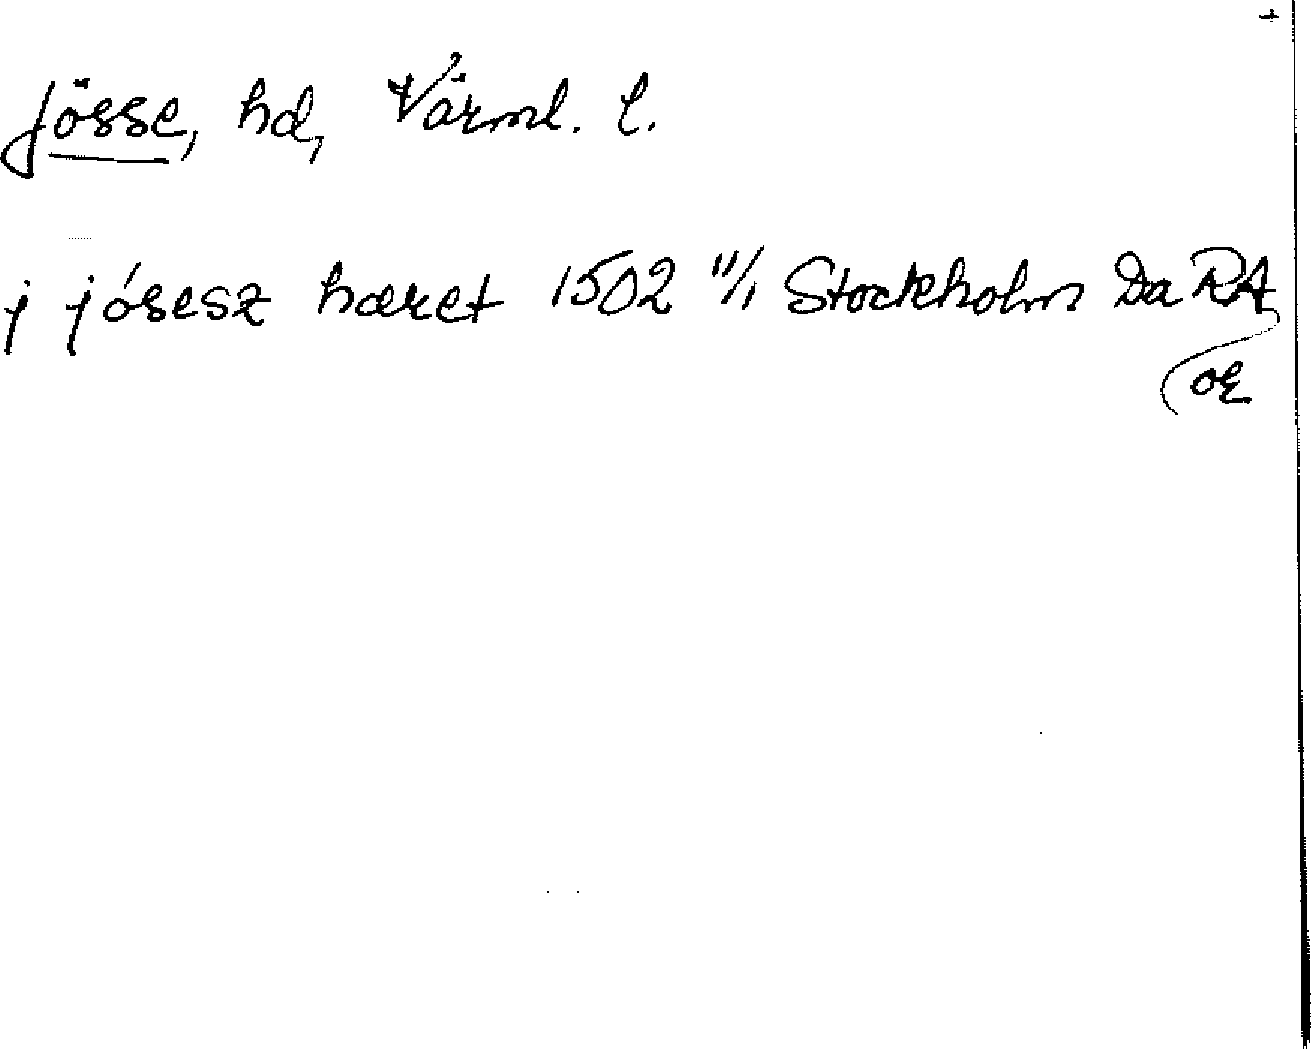 Jösse, hd, Värml. l.
j jósesz hæret 1502 11/1 Stockholm Da RA
or